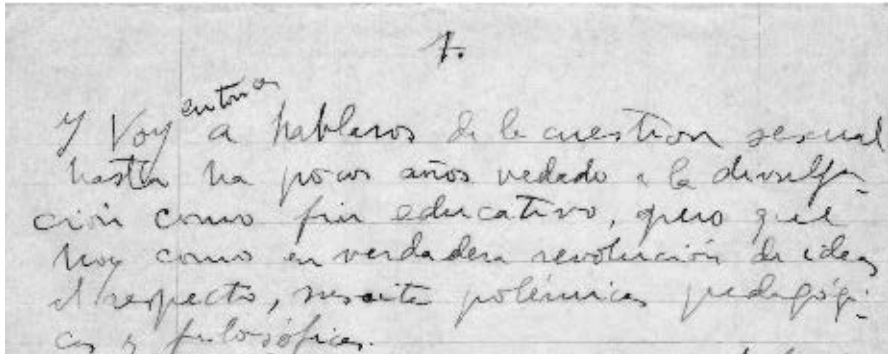 1.
entonces
Y Voy a hablaros de la cuestion sexual
hasta ha pocos años vedado a la divulga-
ción como fin educativo, pero que
hoy como en verdadera revolución de ideas
al respecto, suscita polémicas pedagógi-
cas y filosóficas.